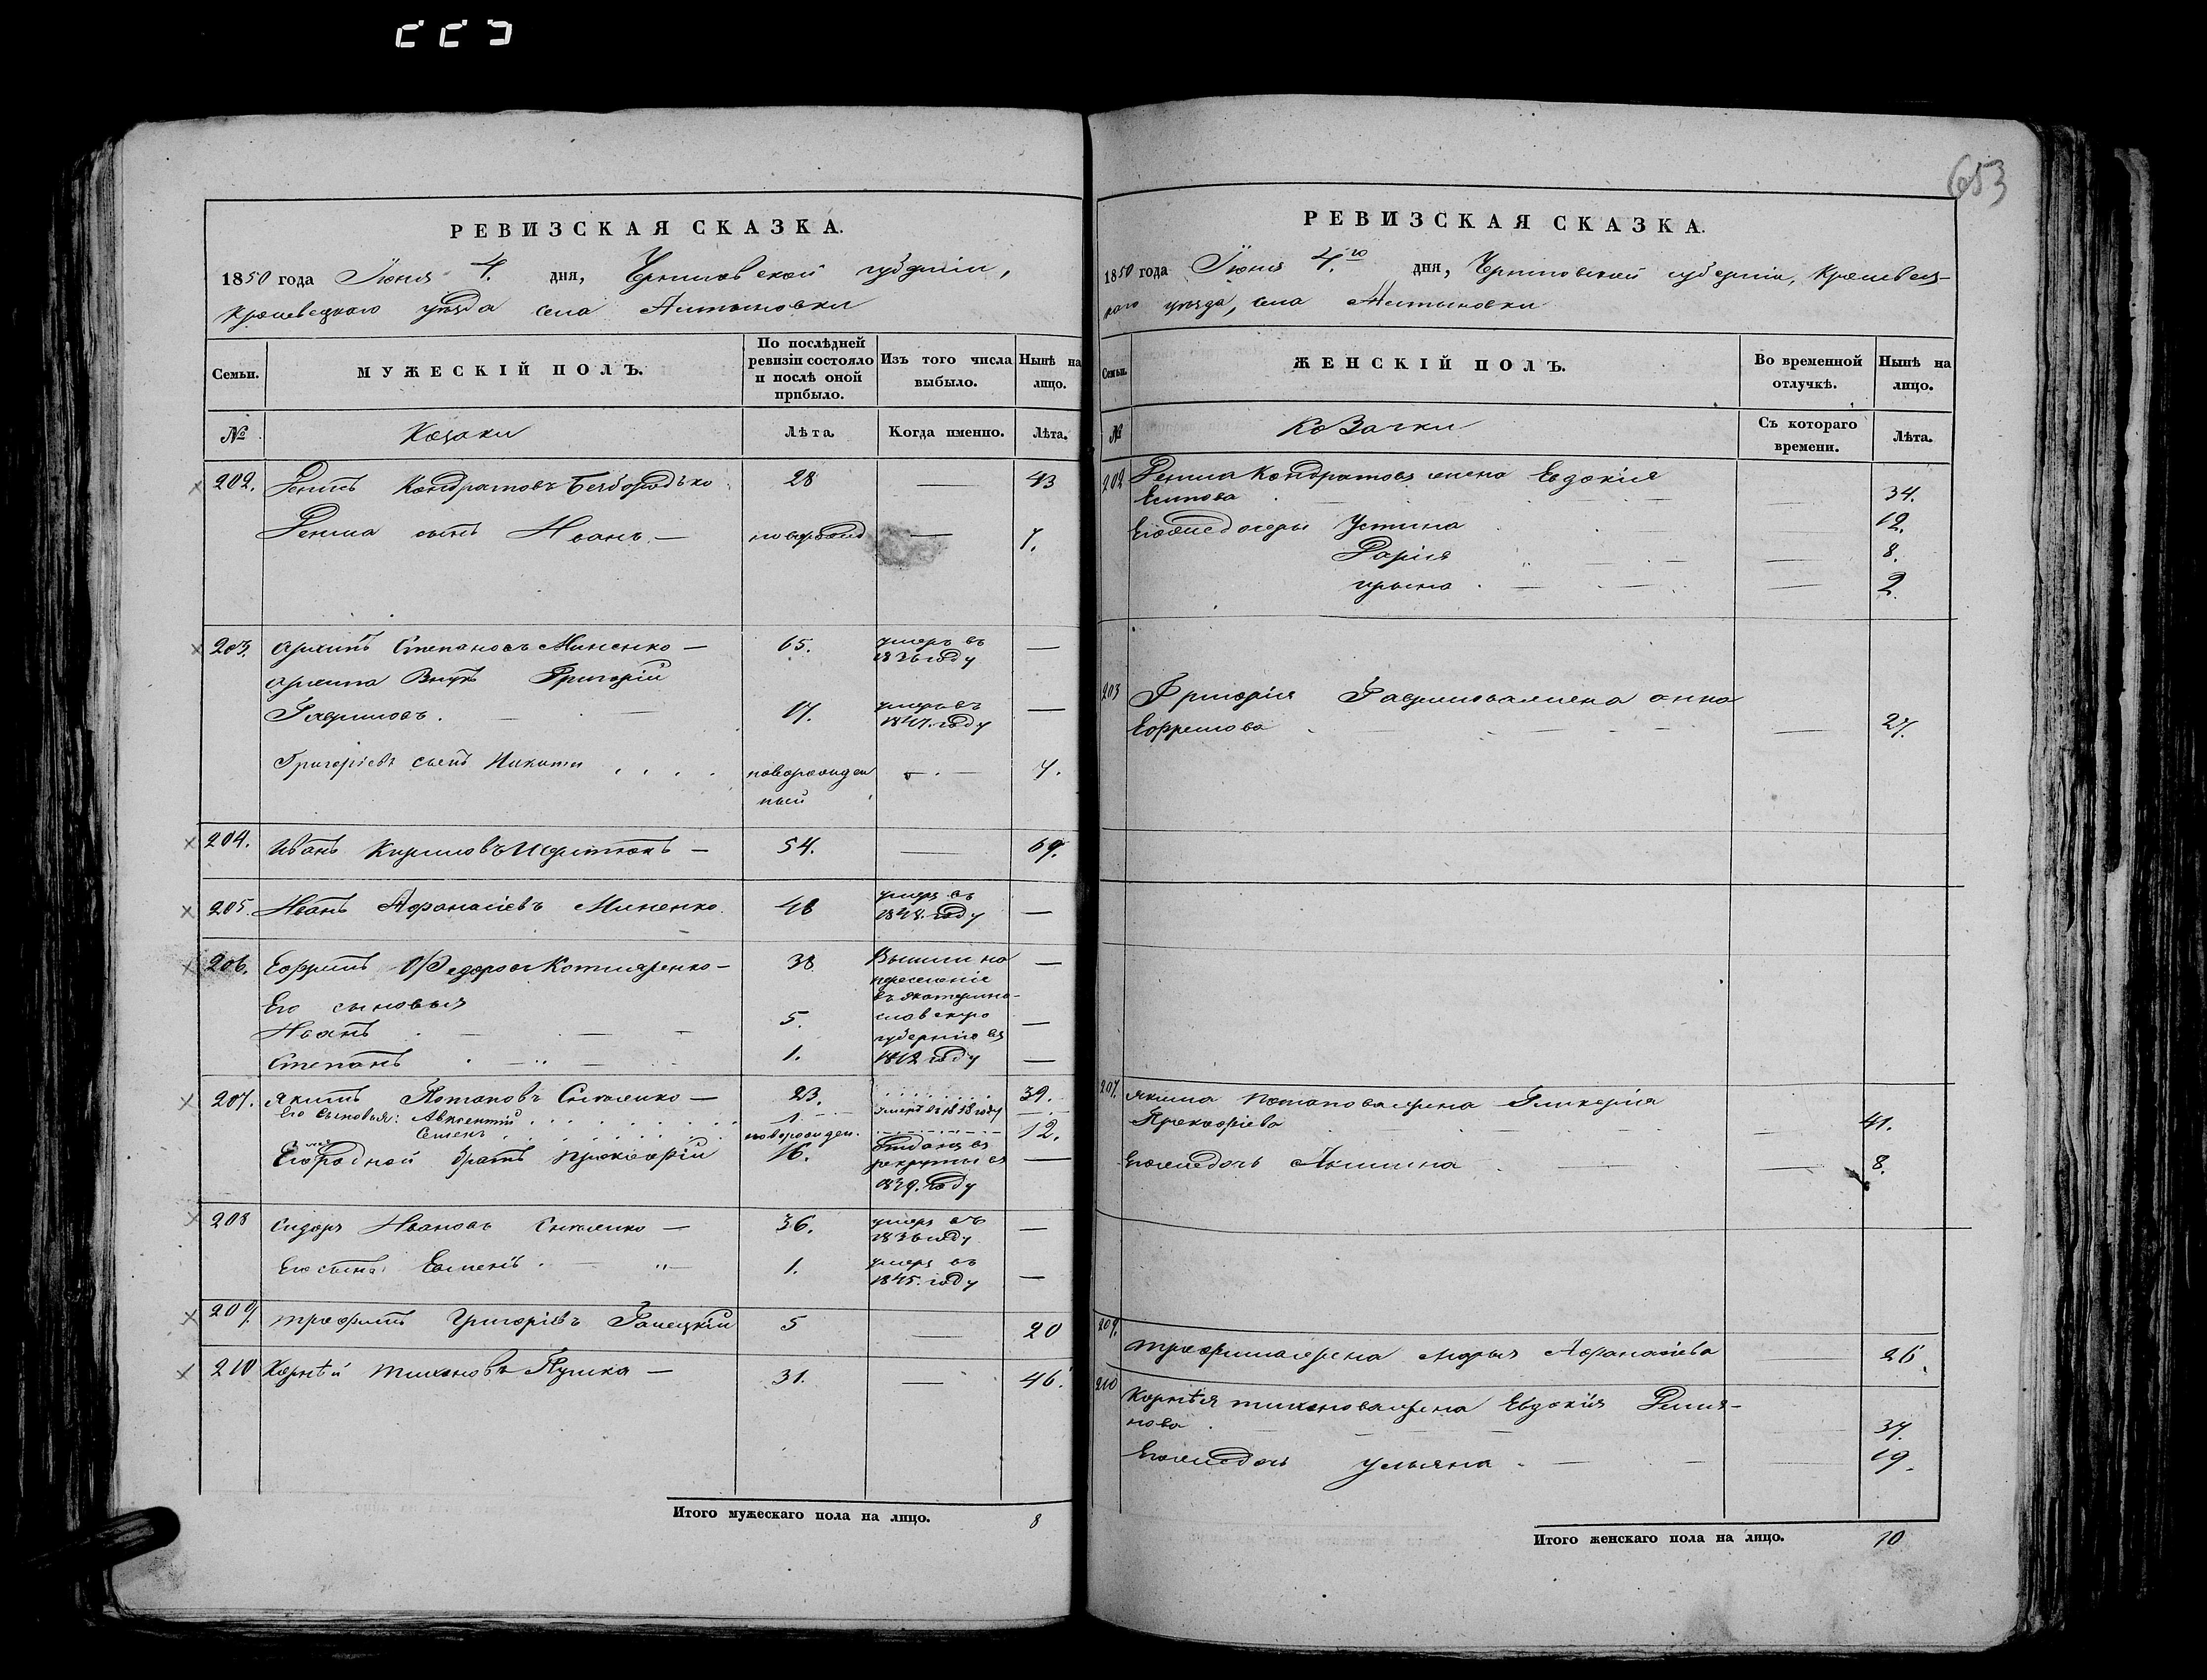 653
РЕВИЗСКАЯ СКАЗКА.
1850 года Іюня 4. дня, Черниговской губерніи,
Кролевецкаго уѣзда села Алтыновки
Семьи.
МУЖЕСКІЙ ПОЛЪ.
По послѣдней ревизіи состояло и послѣ оной прибыло.
Изъ того числа выбыло.
Нынѣ на лицо.
№
Козаки
Лѣта.
Когда именно.
Лѣта.
202. Денисъ Кондратовъ Безбородько 28 — 43
Дениса сынъ Иванъ — новорожд — 7.
203. Архипъ Степановъ Миненко — 65. умеръ въ 1836 году —
Архипа Внукъ Григорій
Гавриловъ. 17. умеръ въ 1847. году —
Григоріевъ сынъ Никита новорожден ный — 7.
204. Иванъ Кириловъ — 54. — 69.
205. Иванъ Афанасіевъ Миненко. 48 умеръ въ 1848. году —
206. Ефримъ Федоровъ Котляренко — 38 Вышли на —
переселеніе
Его сыновья въ Екатерино-
Иванъ 5. славскую —
губернію въ
Степанъ 1. 1842 году —
207. Якимъ Потаповъ — 23. 39.
Его сыновья: Авксентій 1 умеръ въ 1838 году —
Семенъ новорожден. 12.
Его родной братъ Прокофій 16. Отданъ въ рекруты въ 1839. году —
208 Сидоръ Ивановъ — 36. умеръ въ 1836 году —
Его сынъ: Евменъ 1. умеръ въ 1845. году —
209. Трофимъ Григоріевъ 5 — 20
210 Корнѣй Тихоновъ Пушка — 31. — 46.
Итого мужескаго пола на лицо. 8
РЕВИЗСКАЯ СКАЗКА.
1850 года Іюня 4.го дня, Черниговской губерніи, Кролевец-
каго уѣзда, села Алтыновки
Семьи.
ЖЕНСКІЙ ПОЛЪ.
Во временной отлучкѣ.
Нынѣ на лицо.
№
Козачки
Съ котораго времени.
Лѣта.
202 Дениса Кондратова жена Евдокія
Есипова — 34.
Его же дочери Устина 12.
Дарія — 8.
Ирына — 2.
203 Григорія Гаврилова жена Анна
Ефремова — 27.
207. Якима Потапова жена Гликерія
Прокофіева 41.
Его же дочь Акилина — 8.
209. Трофима жена Марья Афанасіева — 26.
210 Корнѣя Тихонова жена Евдокія Демья-
нова — 37.
Его же дочь Ульяна — 19.
Итого женскаго пола на лицо. 10